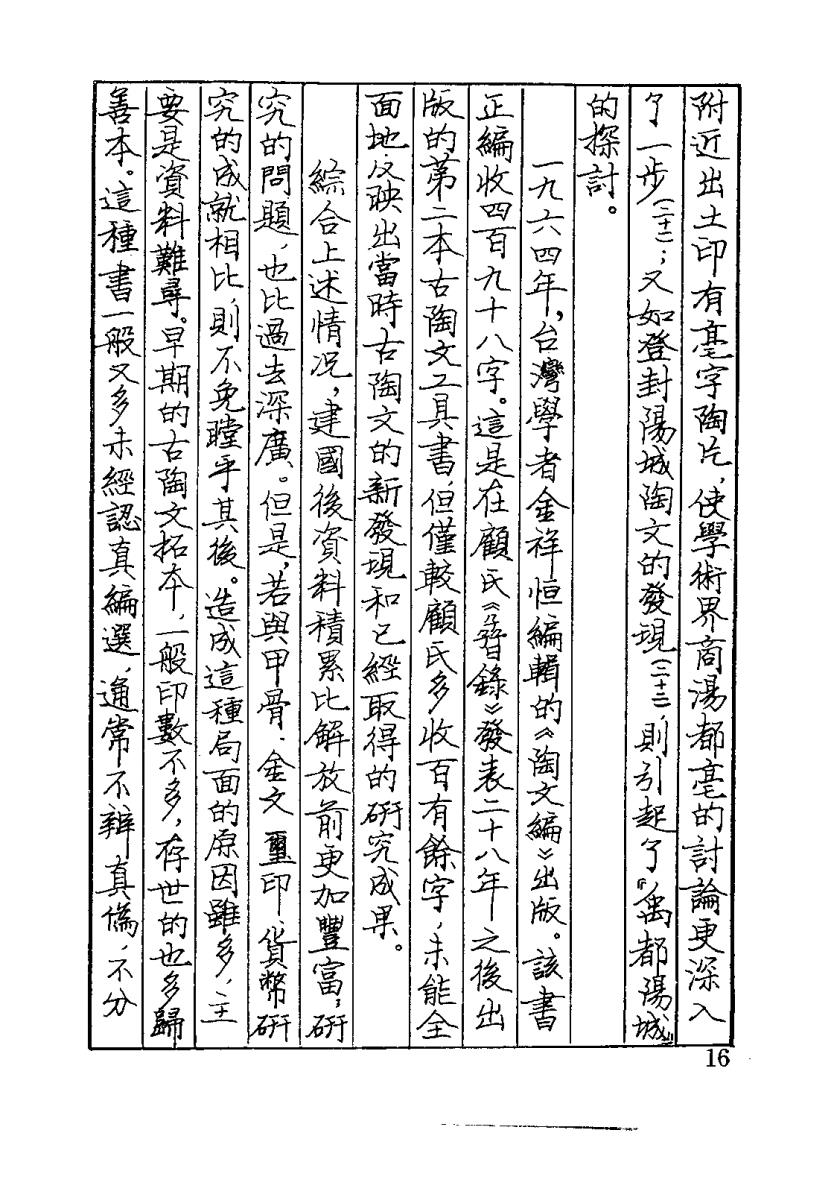 附近出土印有亳字陶片，使學術界商湯都亳的討論更深入
了一步（二十二）；又如登封陽城陶文的發現（二十三），則引起了“禹都陽城”
的探討。
一九六四年，台灣學者金祥恒編輯的《陶文編》出版。該書
正編收四百九十八字。這是在顧氏《孴錄》發表二十八年之後出
版的第二本古陶文工具書，但僅較顧氏多收百有餘字，未能全
面地反映出當時古陶文的新發現和已經取得的研究成果。
綜合上述情況，建國後資料積累比解放前更加豐富；研
究的問題，也比過去深廣。但是，若與甲骨、金文、璽印、貨幣研
究的成就相比，則不免瞠乎其後。造成這種局面的原因雖多，主
要是資料難尋。早期的古陶文拓本，一般印數不多，存世的也多歸
善本。這種書一般又多未經認真編選，通常不辨真僞，不分
16